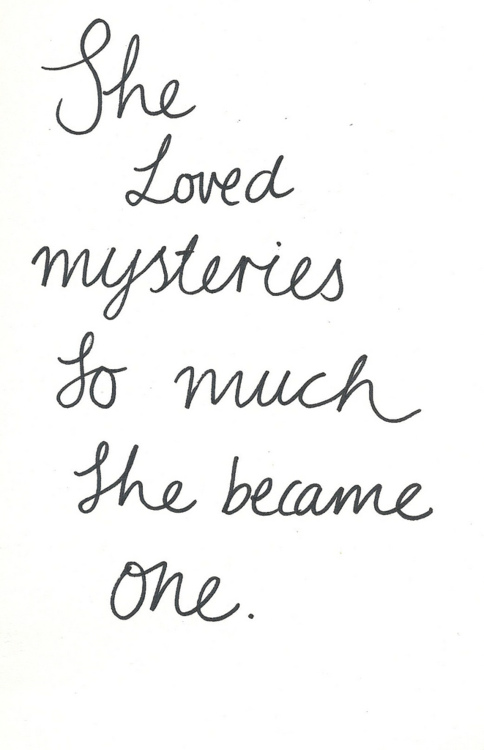 She
Loved
mysteries
So much
She became
one.